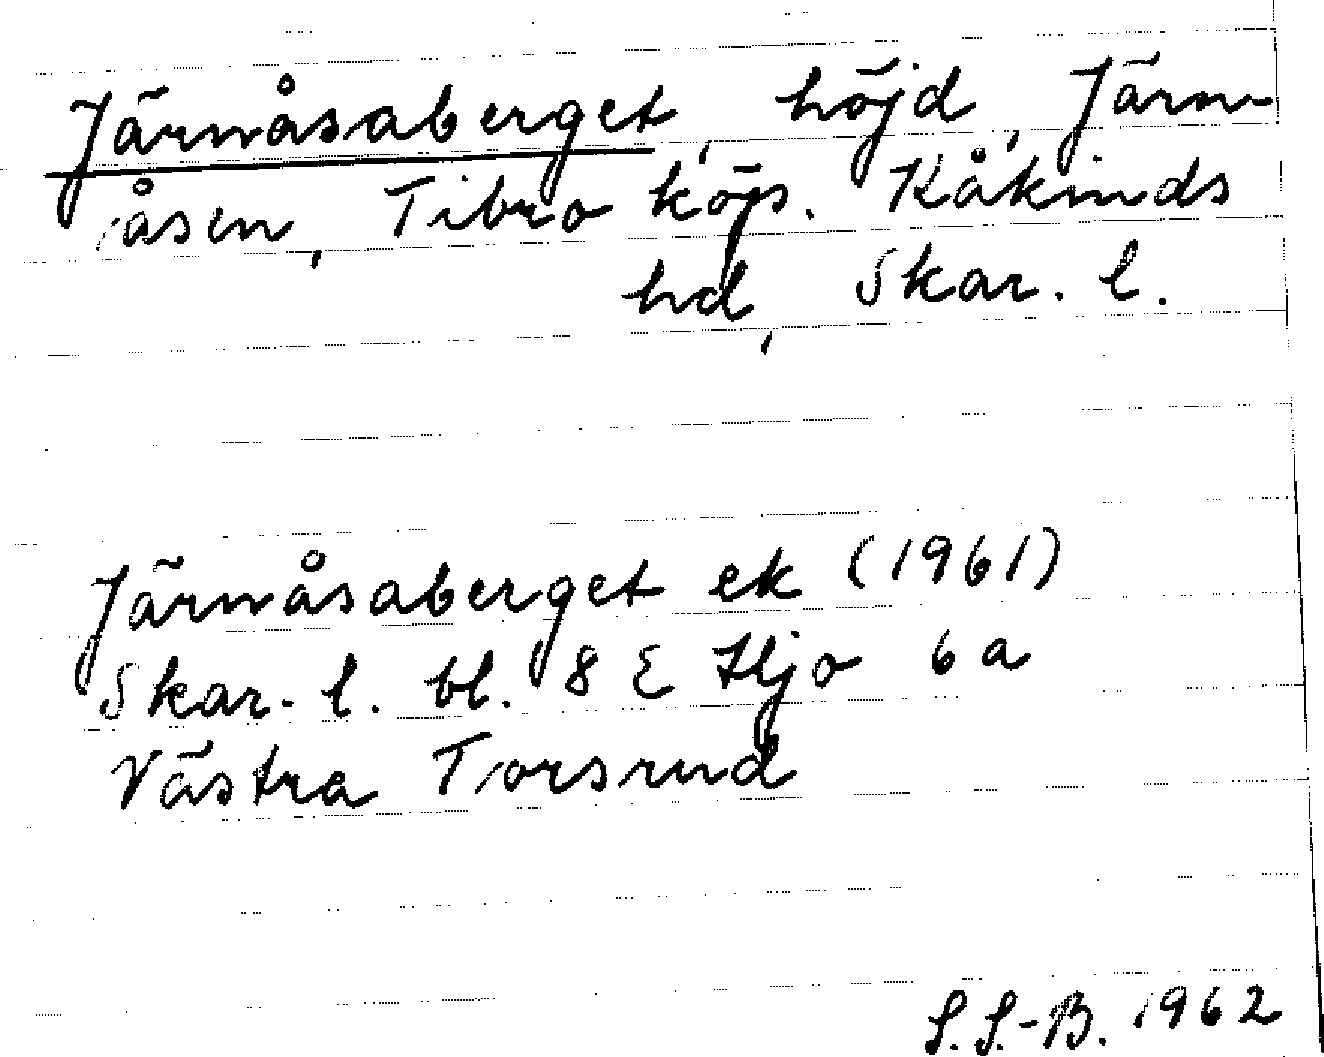 Järnåsaberget, höjd, Järn-
åsen, Tibro köp. Kåkinds
hd, Skar. l.
Järnåsaberget ek (1961)
Skar. l. bl. 8 E Hjo 6 a
Västra Torsrud
S. S.-B. 1962